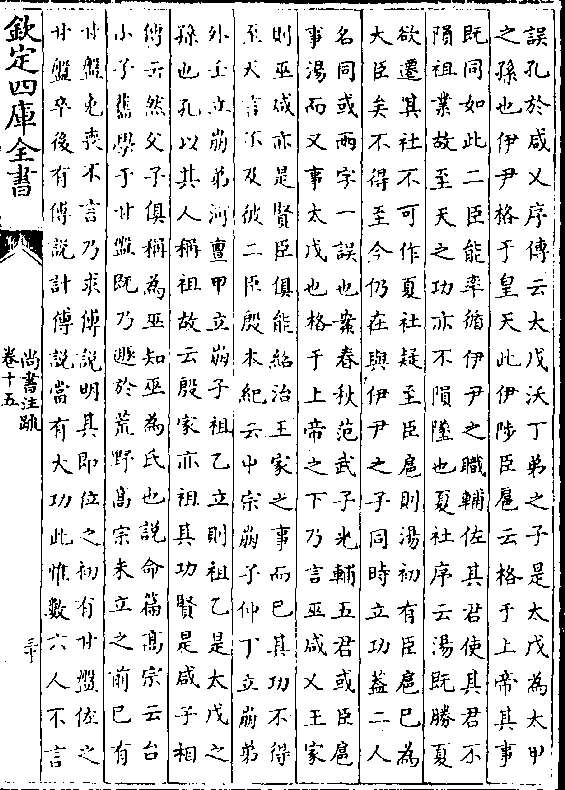 誤孔於咸乂序傳云太戊沃丁弟之子是太戊為太甲
之孫也伊尹格于皇天此伊陟臣扈云格于上帝其事
既同如此二臣能率循伊尹之職輔佐其君使其君不
隕祖業故至天之功亦不隕墜也夏社序云湯既勝夏
欲遷其社不可作夏社疑至臣扈則湯初有臣扈已為
大臣矣不得至今仍在與伊尹之子同時立功蓋二人
名同或兩字一誤也案春秋范武子光輔五君或臣扈
事湯而又事太戊也格于上帝之下乃言巫咸乂王家
則巫咸亦是賢臣俱能紹治王家之事而已其功不得
至天言不及彼二臣殷本紀云中宗崩子仲丁立崩弟
外壬立崩弟河亶甲立崩子祖乙立則祖乙是太戊之
孫也孔以其人稱祖故云殷家亦祖其功賢是咸子相
傳云然父子俱稱為巫知巫為氏也說命篇高宗云台
小子舊學于甘盤既乃遯於荒野高宗未立之前已有
甘盤免喪不言乃求傅說明其即位之初有甘盤佐之
甘盤卒後有傅說計傅說當有大功此惟數六人不言
欽定四庫全書
尚書注疏
卷十五
三十